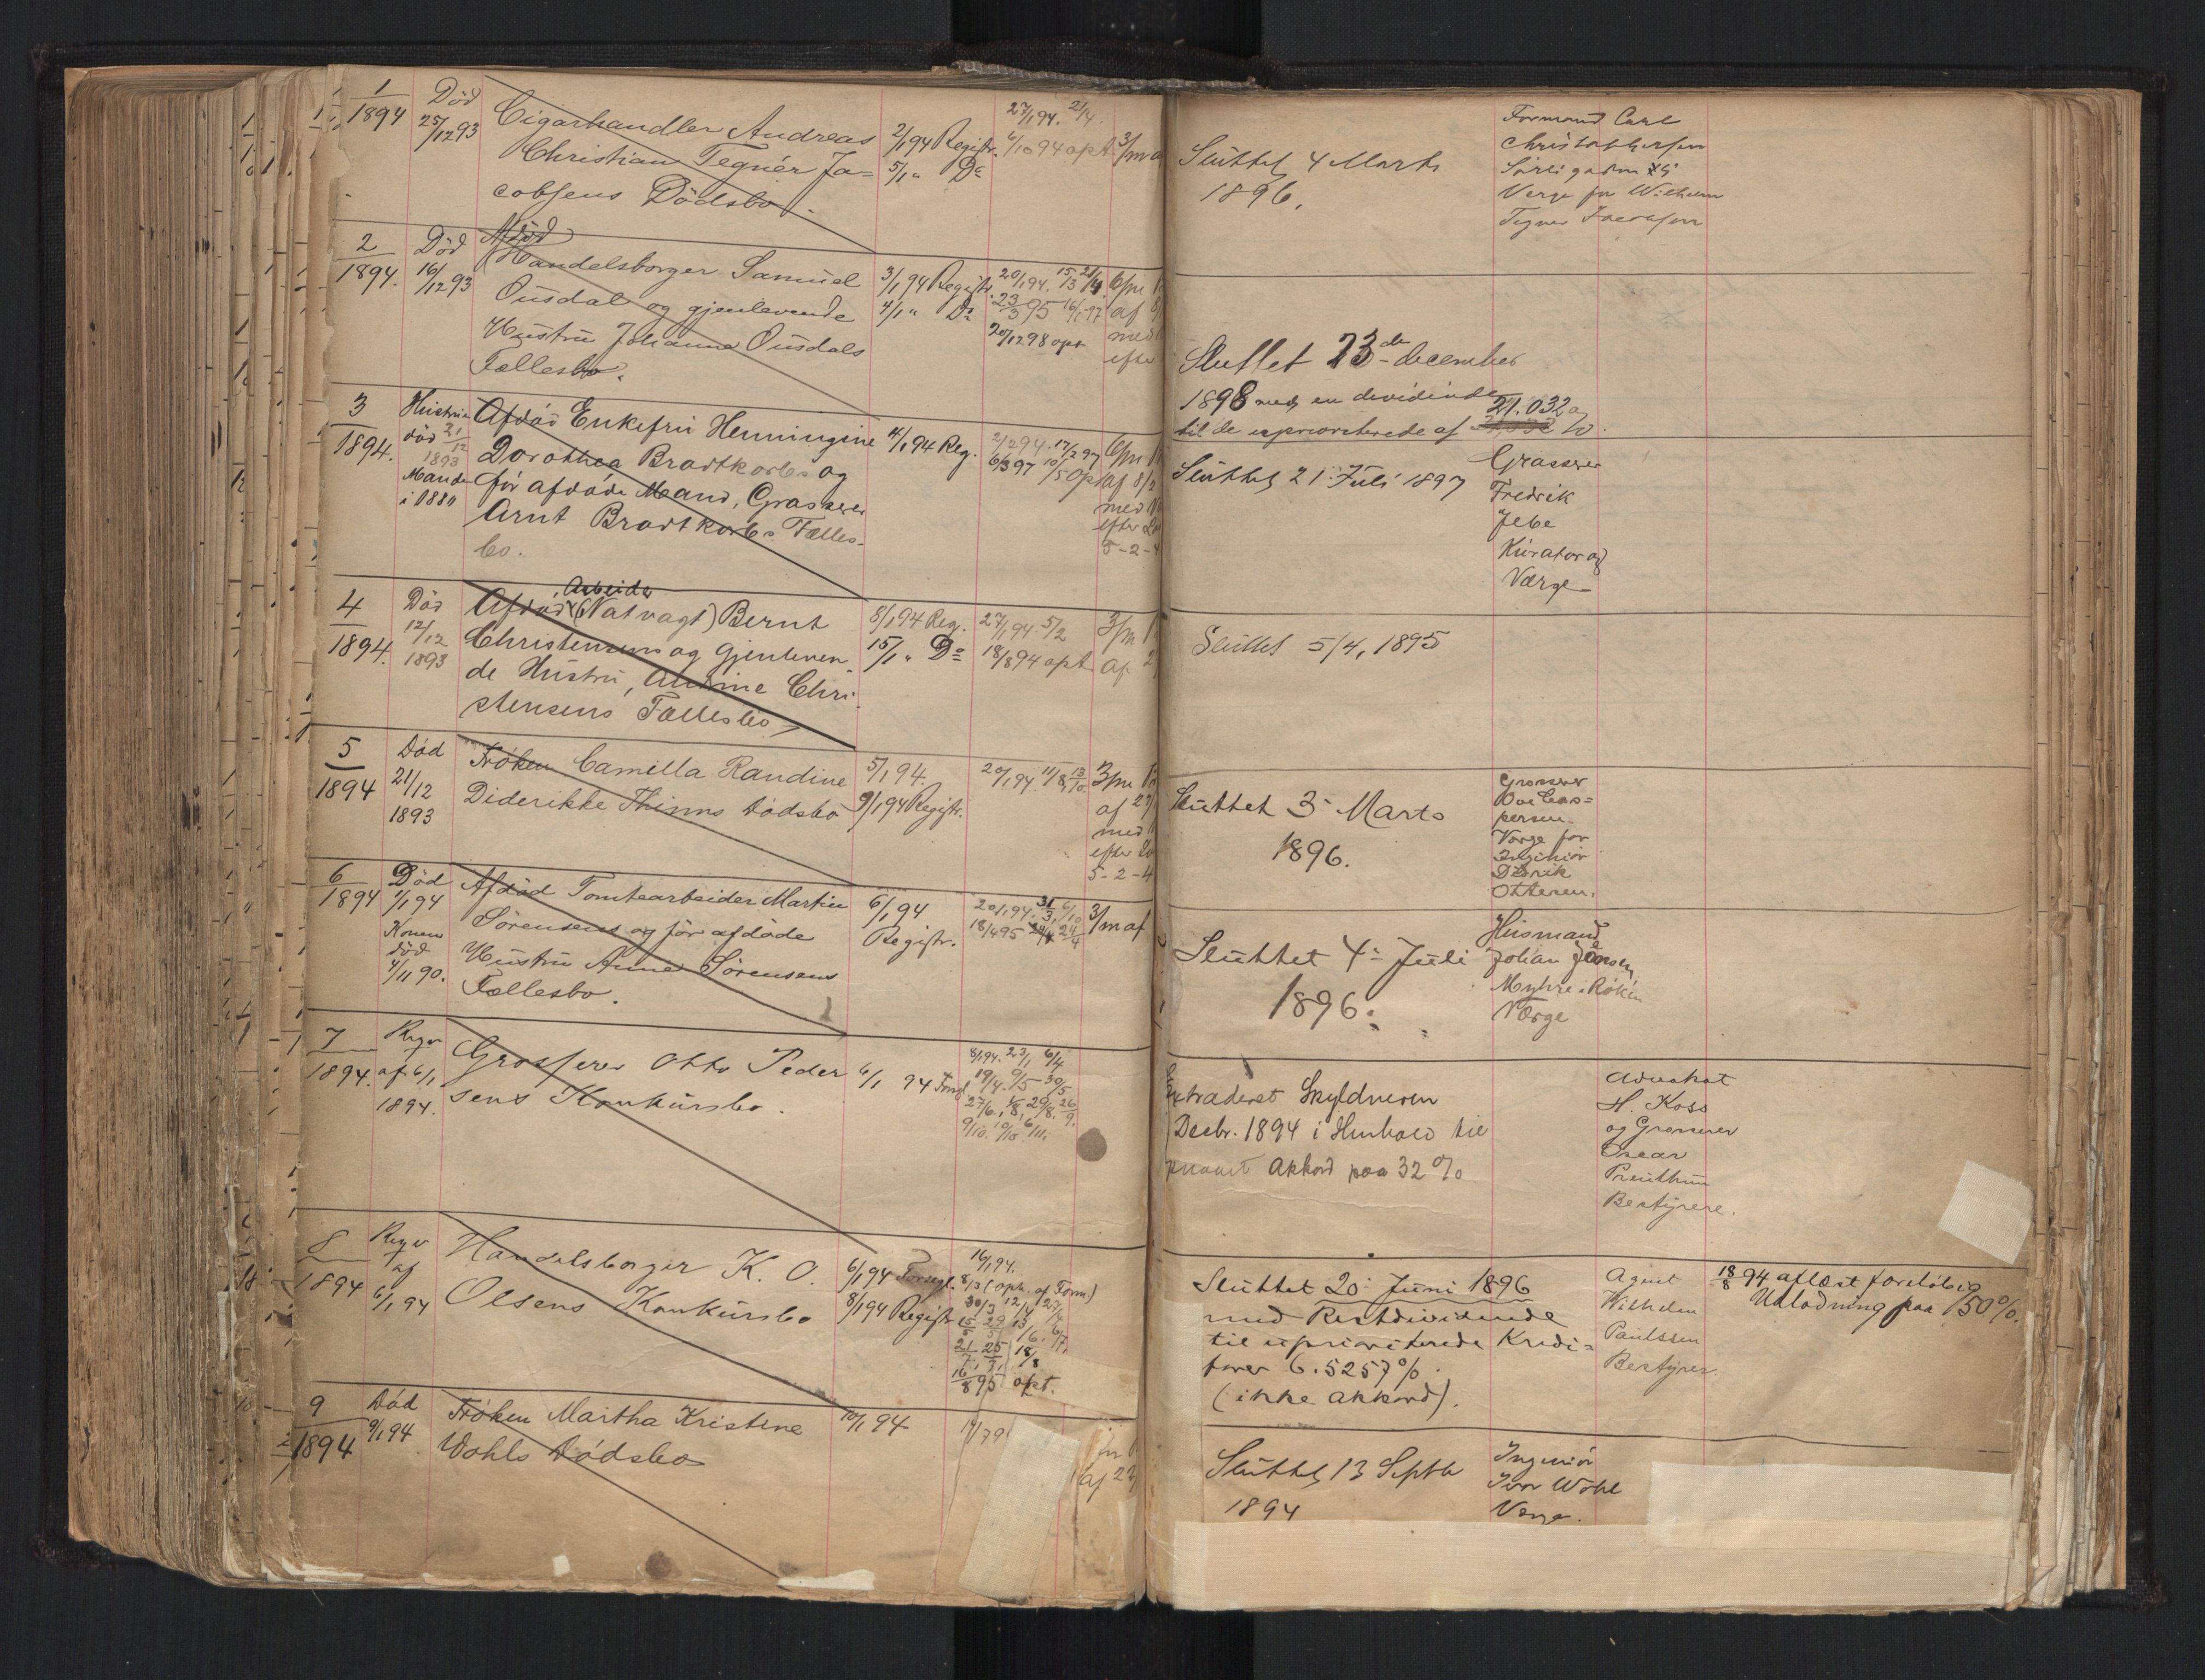 1
1894
Död
25/12 93
Cigarhandler Andreas
Christian Tegnér Ja=
cobsens Dödsbo.
2/1 94 Registr.
5/1 " Do
27/1 94. 21/4.
6/10 94 opt.
3/m a
Sluttet 4 Marts
1896.
Formand Carl
Christophersen
Verge for Wilhelm
Tegner Jacobsen
2
1894.
Död
16/12 93
Afdöd
Handelsborger Samuel
Ousdal og gjenlevende
Hustru Johanna Ousdals
Fællesbo.
3/1 94 Registr.
4/1 " Do
20/1 94. 15/3 21/4.
23/3 95 16/1 97
20/12 98 opt
6/m
af
med
efter
Sluttet 23de december
1898 med en devidende
til de uprioriterede af 21.032 o/o.
3
1894.
Hustrue
död 31/12
1893
Manden
i 1880
Afdöd Enkefru Henningine
Dorothea Bradtkorbs og
för afdöde Mand, Grosserer
Arnt Bradtkorbs Fælles-
bo.
4/1 94 Reg.
2/2 94. 17/2 97
6/3 97 10/5 opt
6/m
af 8/2
med
efter
5-2-4
Sluttet 21 Juli 1897
Grosserer
Fredrik
Jebe
Kurator og
Værge
4
1894.
Död
12/12
1893
Arbeider
Afdöd (Natvagt) Bernt
Christensens og gjenleven
de Hustru, Andrine Chri
stensens Fællesbo
8/1 94 Reg.
15/1 " Do
27/1 94 5/2
18/8 94 opt
3/m
af 2
Sluttet 5/4, 1895
5
1894
Död
21/12
1893
Fröken Camilla Randine
Diderikke Thinns Dödsbo
5/1 94.
9/1 94 Registr.
20/1 94 11/8 13/10.
3/m
af 27
med
efter
5-2-4
Sluttet 3 Marts
1896.
Grosserer
Ove Cas=
persen.
Værge for
Ingeniör
Didrik
Ottesen.
6
1894
Död
1/1 94
Konen
död
4/11 90.
Afdöd Tomtearbeider Martin
Sörensens og för afdöde
Hustru Anna Sörensens
Fællesbo.
6/1 94
Registr.
20/1 94. 31/3, 6/10
18/4 95 24/4
3/m af
Sluttet 4 Juli
1896.
Husmand
Johan Jensen
Myhre i Röken
Værge
7
1894.
Reqv
af 6/1
1894.
Grosserer Otto Peder
sens Konkursbo.
6/1 94 Forsl
8/1 94. 23/1 6/4
19/4. 9/5 30/5
27/6. 1/8, 29/8. 26/9.
9/10. 10/10. 6/11.
Extraderet Skyldneren
Decbr. 1894 i Henhold til
Akkord paa 32 %
Advokat
H. Koss
og Grosserer
Oscar
Bestyrere.
8
1894
Reqv
af
6/1 94
Handelsborger K. O.
Olsens Konkursbo
6/1 94 Forsegl.
8/1 94 Registr
16/1 94.
8/3 (oph. af Form)
30/3 12/4 27/4
16/8 95 opt.
Sluttet 20 Juni 1896
med Restdividende
til uprioriterede Kredi=
torer 6.5257 %.
(ikke akkord).
Agent
Wilhelm
Paulssen
Bestyrer.
18/8 94 aflæst foreløbig
Udlodning paa 50 %.
9
1894
Död
9/1 94
Fröken Martha Kristine
Wohls Dödsbo
10/1 94
af 23
Sluttet 13 Septbr
1894
Ingeniör
Iver Wohl
Verge.